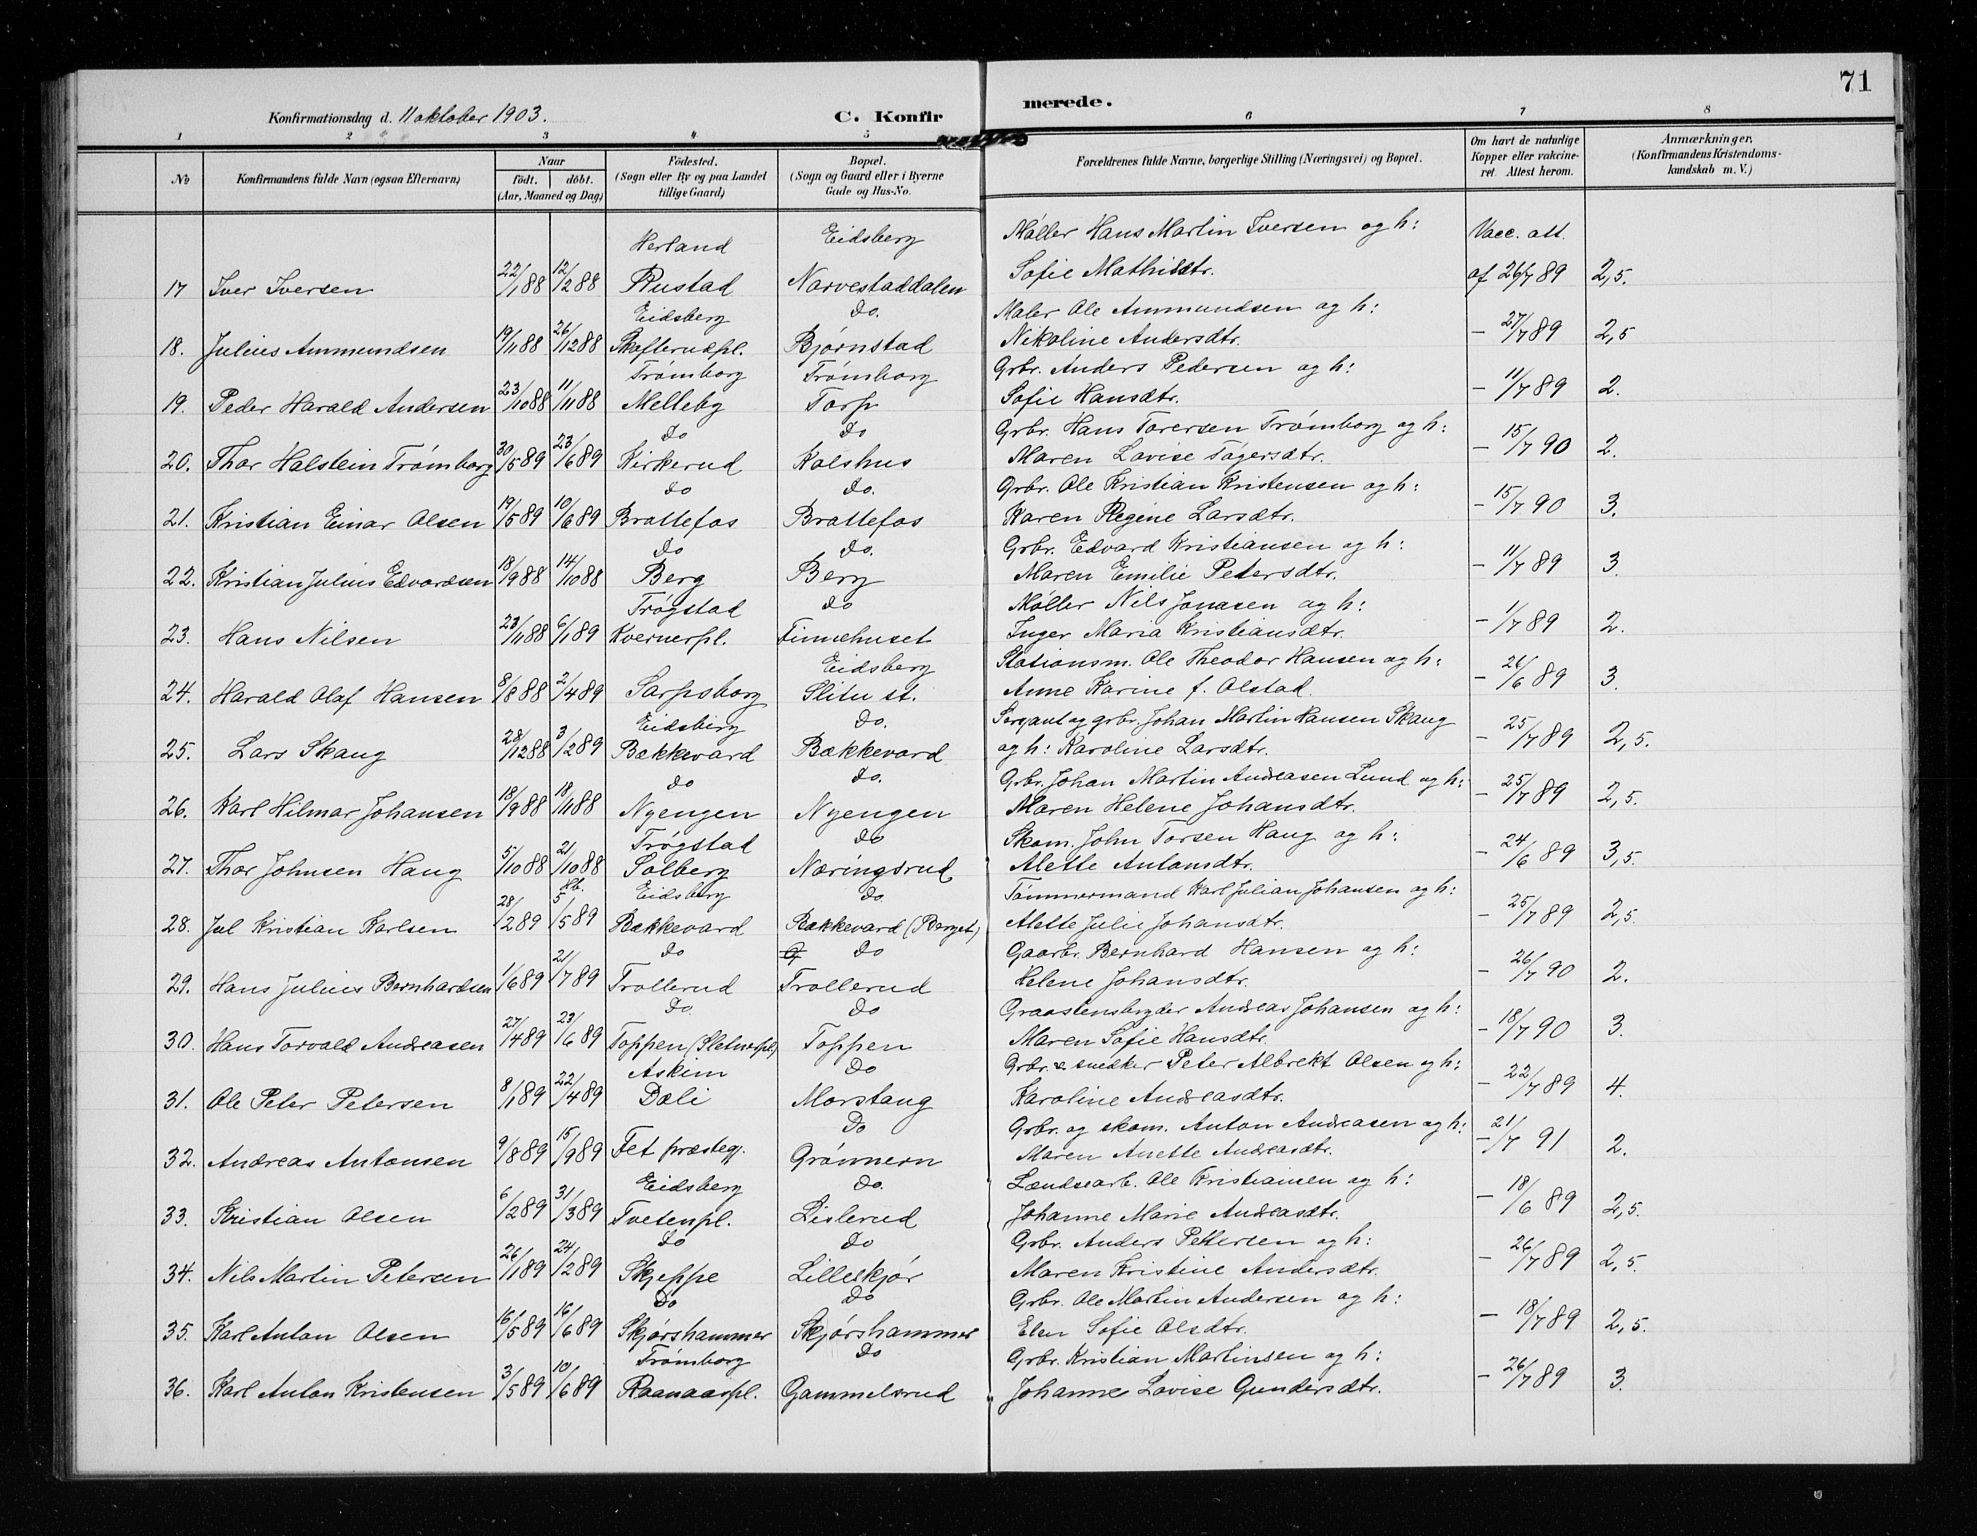 71
Konfirmationsdag d. 11 oktober 1903. C. Konfirmerede.
1 2 3 4 5 6 7 8
No Konfirmandens fulde Navn (ogsaa Efternavn) Naar født. døbt. (Aar, Maaned og Dag) Födested. (Sogn eller By og paa Landet tillige Gaard) Bopæl. (Sogn og Gaard eller i Byerne Gade og Hus-No. Forældrenes fulde Navne, borgerlige Stilling (Næringsvei) og Bopæl. Om havt de naturlige Kopper eller vakcineret. Attest herom. Anmærkninger. (Konfirmandens Kristendomskundskab m. V.)
Herland Eidsberg Møller Hans Martin Iversen og h: Vacc. att.
17 Iver Iversen 22/1 88 12/2 88 Rustad Narvestaddalen Sofie Mathisdtr. af 26/7 89 2,5.
Eidsberg do. Maler Ole Ammundsen og h:
18. Julius Ammundsen 19/11 88 26/12 88 Skofterudpl. Bjørnstad Nikoline Andersdtr. - 27/7 89 2,5
Trømborg Trømborg Grbr. Anders Pedersen og h:
19. Peder Harald Andersen 23/10 88 11/11 88 Melleby Torp Sofie Hansdtr. - 11/7 89 2.
do do Grbr. Hans Torersen Trømborg og h:
20. Thor Halstein Trømborg 30/5 89 23/6 89 Kirkerud Kolshus Maren Lovise Tagersdtr. - 15/7 90 2.
do do. Grbr. Ole Kristian Kristensen og h:
21. Kristian Einar Olsen 19/5 89 10/6 89 Brattefos Brattefos Karen Regine Larsdtr. - 15/7 90 3.
do do. Grbr. Edvard Kristiansen og h:
22. Kristian Julius Edvardsen 18/9 88 14/10 88 Berg Berg Maren Emilie Petersdtr. - 11/7 89 3.
Trøgstad do Møller Nils Jonasen og h:
23. Hans Nilsen 23/11 88 6/1 89 Kvernerpl. Finnehuset Inger Maria Kristiansdtr. - 1/7 89 2.
Eidsberg Stationsm. Ole Theodor Hansen og h:
24. Harald Olaf Hansen 8/8 88 2/4 89 Sarpsborg Slitu st. Anne Karine f. Olstad. - 26/6 89 3.
Eidsberg do. Sergant og grbr. Johan Martin Hansen Skaug
25. Lars Skaug 28/12 88 3/2 89 Bækkevard Bækkevard og h: Karoline Larsdtr. - 25/7 89 2,5.
do do. Grbr. Johan Martin Andreasen Lund og h:
26. Karl Hilmar Johansen 18/9 88 18/11 88 Nyengen Nyengen Maren Helene Johansdtr. - 25/7 89 2,5.
Trøgstad do Skom. John Torsen Haug og h:
27. Thor Johnsen Haug 5/10 88 21/10 88 Solberg Næringsrud Alette Antonsdtr. - 24/6 89 3,5.
Eidsberg do. Tømmermand Karl Julian Johansen og h:
28. Jul Kristian Karlsen 28/2 89 5/5 89 Bækkevard Bækkevard (Berget) Alette Julie Johansdtr. - 25/7 89 2,5.
do do Gaarbr. Bernhard Hansen og h:
29. Hans Julius Bernhardsen 1/6 89 21/7 89 Trollerud Trollerud Helene Johansdtr. - 26/7 90 2.
Do. do Graastensbryder Andreas Johansen og h:
30. Hans Torvald Andreasen 27/4 89 23/6 89 Toppen (Sletnerpl.) Toppen Maren Sofie Hansdtr. - 18/7 90 3.
Askim do Grbr. & snedker Peter Albrekt Olsen og h:
31. Ole Peter Petersen 8/1 89 22/4 89 Dæli Morstang Karoline Andreasdtr. - 22/7 89 4.
Do Grbr. og skom. Anton Andreasen og h:
32. Andreas Antonsen 9/8 89 15/9 89 Fet præstegj. Grønnern Maren Anette Andreasdtr. - 21/7 91 2.
Eidsberg do. Lændsearb. Ole Kristiansen og h:
33. Kristian Olsen 6/2 89 31/3 89 Tvetenpl. Lislerud Johanne Marie Andreasdtr. - 18/6 89 2,5.
do do Grbr. Anders Pettersen og h:
34. Nils Martin Petersen 26/1 89 24/2 89 Skjeppe Lilleskjør Maren Kristine Andersdtr. - 26/7 89 2,5.
do do Grbr. Ole Martin Andersen og h:
35. Karl Anton Olsen 16/5 89 16/6 89 Skjørshammer Skjørshammer Elen Sofie Olsdtr. - 18/7 89 2,5.
Trømborg do Grbr. Kristian Martinsen og h:
36. Karl Anton Kristensen 3/5 89 10/6 89 Raanaaspl. Gammelsrud Johanne Lovise Gundersdtr. - 26/7 89 3.